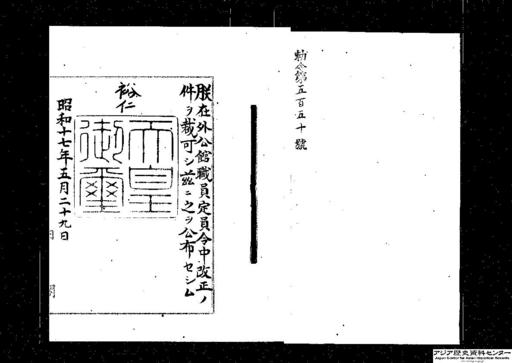 勅令第五百五十號
朕在外公館職員定員令中改正ノ
件ヲ裁可シ茲ニ之ヲ公布セシム
裕仁
天皇
御璽
昭和十七年五月二十九日
アジア歴史資料センター
Japan Center for Asian Historical Records